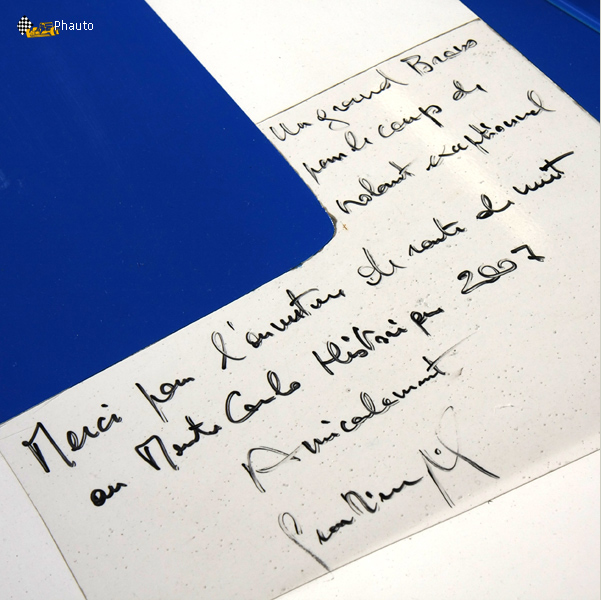 Phauto
Un grand Bravo
pour le coup de
volant exceptionnel
Merci pour l'ouverture de route de nuit
au Monte Carlo Historique 2007
Amicalement